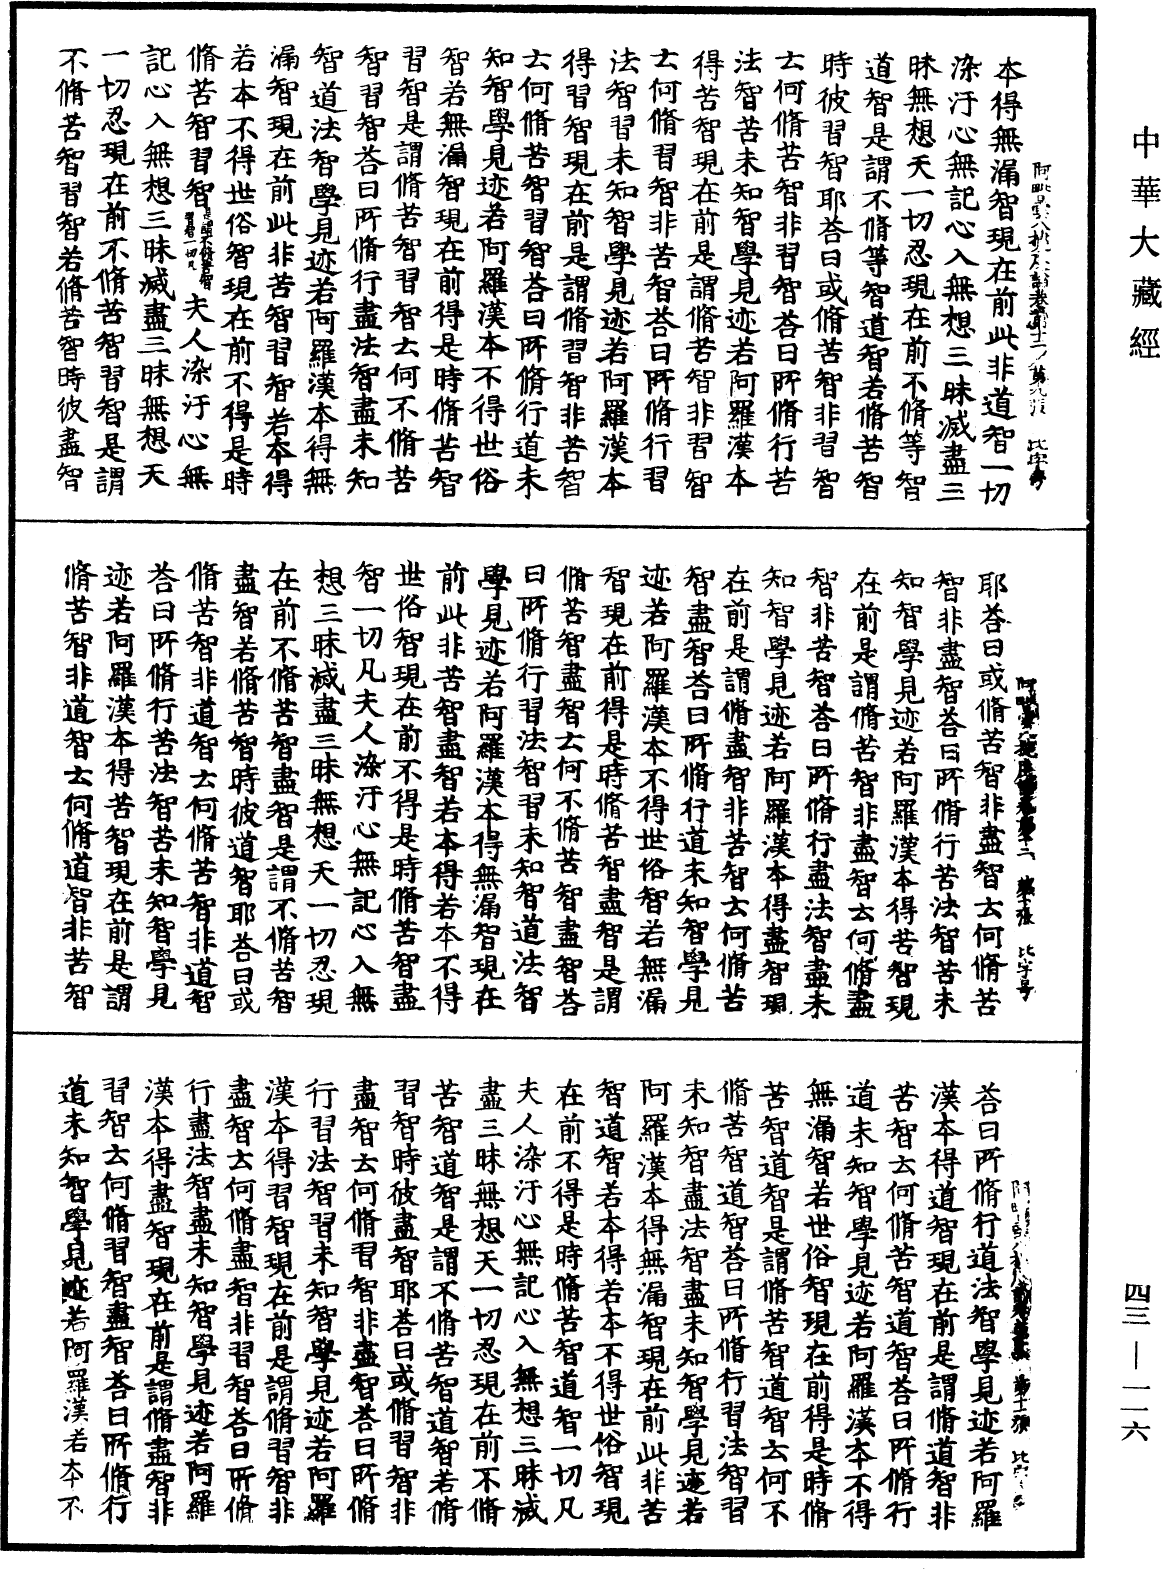 中華大藏經
本得無漏智現在前此非道智一切
染汙心無記心入無想三昧滅盡三
昧無想天一切忍現在前不脩等智
道智是謂不脩等智道智若脩苦智
時彼習智耶荅曰或脩苦智非習智
云何脩苦智非習智荅曰所脩行苦
法智苦未知智學見迹若阿羅漢本
得苦智現在前是謂脩苦智非習智
云何脩習智非苦智荅曰所脩行習
法智習未知智學見迹若阿羅漢本
得習智現在前是謂脩習智非苦智
云何脩苦智習智荅曰所脩行道未
知智學見迹若阿羅漢本不得世俗
智若無漏智現在前得是時脩苦智
習智是謂脩苦智習智云何不脩苦
智習智荅曰所脩行盡法智盡未知
智道法智學見迹若阿羅漢本得無
漏智現在前此非苦智習智若本得
若本不得世俗智現在前不得是時
脩苦智習智是謂不脩苦智習智一切凡夫人染汙心無
記心入無想三昧滅盡三昧無想天
一切忍現在前不脩苦智習智是謂
不脩苦智習智若脩苦智時彼盡智
耶荅曰或脩苦智非盡智云何脩苦
智非盡智荅曰所脩行苦法智苦未
知智學見迹若阿羅漢本得苦智現
在前是謂脩苦智非盡智云何脩盡
智非苦智荅曰所脩行盡法智盡未
知智學見迹若阿羅漢本得盡智現
在前是謂脩盡智非苦智云何脩苦
智盡智荅曰所脩行道未知智學見
迹若阿羅漢本不得世俗智若無漏
智現在前得是時脩苦智盡智是謂
脩苦智盡智云何不脩苦智盡智荅
曰所脩行習法智習未知智道法智
學見迹若阿羅漢本得無漏智現在
前此非苦智盡智若本得若本不得
世俗智現在前不得是時脩苦智盡
智一切凡夫人染汙心無記心入無
想三昧滅盡三昧無想天一切忍現
在前不脩苦智盡智是謂不脩苦智
盡智若脩苦智時彼道智耶荅曰或
脩苦智非道智云何脩苦智非道智
荅曰所脩行苦法智苦未知智學見
迹若阿羅漢本得苦智現在前是謂
脩苦智非道智云何脩道智非苦智
荅曰所脩行道法智學見迹若阿羅
漢本得道智現在前是謂脩道智非
苦智云何脩苦智道智荅曰所脩行
道未知智學見迹若阿羅漢本不得
無漏智若世俗智現在前得是時脩
苦智道智是謂脩苦智道智云何不
脩苦智道智荅曰所脩行習法智習
未知智盡法智盡未知智學見迹若
阿羅漢本得無漏智現在前此非苦
智道智若本得若本不得世俗智現
在前不得是時脩苦智道智一切凡
夫人染汙心無記心入無想三昧滅
盡三昧無想天一切忍現在前不脩
苦智道智是謂不脩苦智道智若脩
習智時彼盡智耶荅曰或脩習智非
盡智云何脩習智非盡智荅曰所脩
行習法智習未知智學見迹若阿羅
漢本得習智現在前是謂脩習智非
盡智云何脩盡智非習智荅曰所脩
行盡法智盡未知智學見迹若阿羅
漢本得盡智現在前是謂脩盡智非
習智云何脩習智盡智荅曰所脩行
道未知智學見迹若阿羅漢若本不
四三—一一六